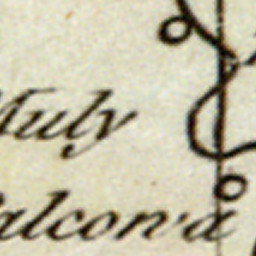 Muly
alcon'a